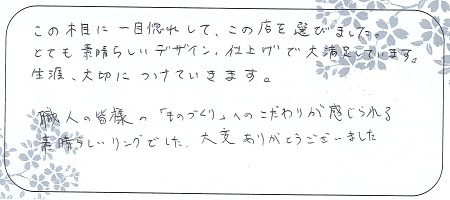 この木目に一目惚れして、この店を選びました。
とても素晴らしいデザイン、仕上げで大満足しています。
生涯、大切につけていきます。
職人の皆様の「ものづくり」へのこだわりが感じられる
素晴らしいリングでした、大変ありがとうございました